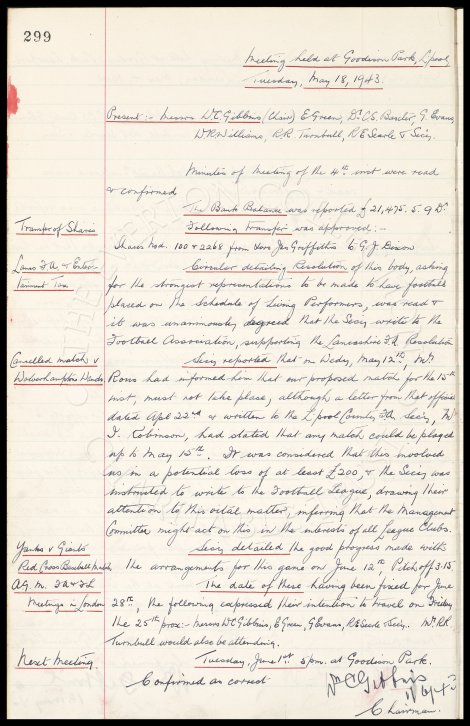 299
Meeting held at Goodison Park, L'pool
Tuesday, May 18, 1943.
Present :- Messrs W.C. Gibbins (Chair) E Green, Dr C.S. Baxter, G. Evans,
W.R. Williams, R.R. Turnbull, R E Searle & Secy.
Minutes of Meeting of the 4th inst were read
& confirmed
The Bank Balance was reported £21,475. 5. 9 Dr
Transfer of Shares
Following Transfer was approved :-
Shares Nos. 100 & 2268 from Jas Griffiths to G. J. Doxon
Lancs F.A & Enter-
tainment Tax
Circular detailing Resolution of this body, asking
for the strongest representations to be made to have football
placed on the Schedule of Living Performers, was read &
it was unanimously agreed that the Secy write to the
Football Association, supporting the Lancashire F.A. Resolution
Cancelled match v
Wolverhampton Wands
Secy reported that on Wedy, May 12th, Mr
Rous had informed him that our proposed match for the 15th
inst, must not take place, although a letter from that office
dated Apl 22nd & written to the L'pool County F.A. Secy, Mr
J. Robinson, had stated that any match could be played
up to May 15th. It was considered that this involved
us in a potential loss of at least £200, & the Secy was
instructed to write to the Football League, drawing their
attention to this vital matter, inferring that the Management
Committee might act on this in the interests of all League Clubs.
Yanks v Giants
Red Cross Baseball Match
Secy detailed the good progress made with
the arrangements for this game on June 12th Pitch off 3.15.
A.G.M. F.A & F.L
Meetings in London
The date of these having been fixed for June
28th, the following expressed their intention to travel on Friday
the 25th prox:- Messrs W C Gibbins, E Green, G Evans, R E Searle & Secy. Mr R.R.
Turnbull would also be attending.
Next Meeting
Tuesday, June 1st 3pm. at Goodison Park.
Confirmed as correct
W C Gibbins
Chairman.